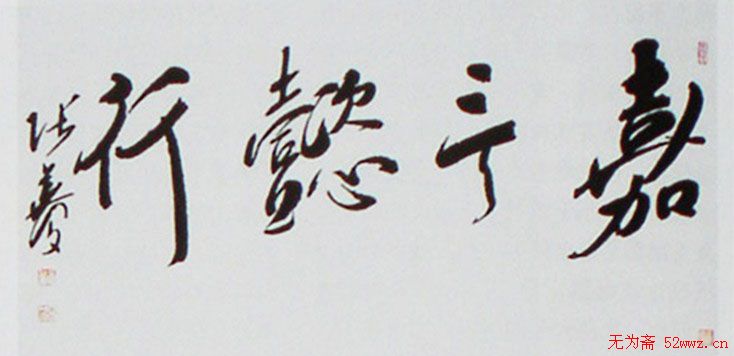 嘉言懿行
张
无为斋 52wwz.cn